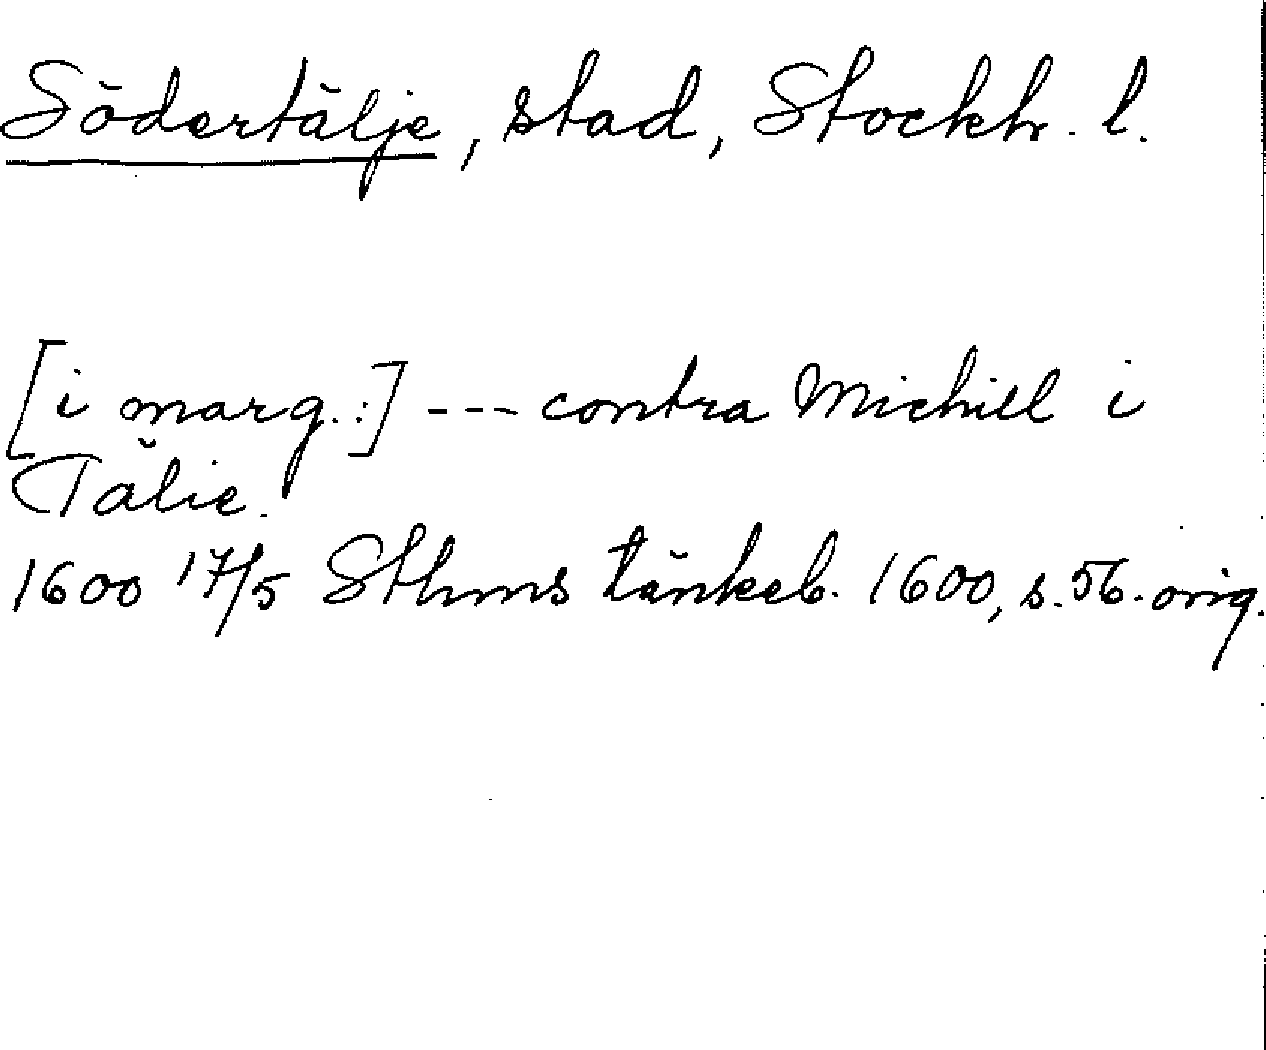 Södertälje, stad, Stockh. l.
[i marg.:] --- contra Michill i
Tälie.
1600 17/5 Sthms tänkeb. 1600, s. 56. orig.